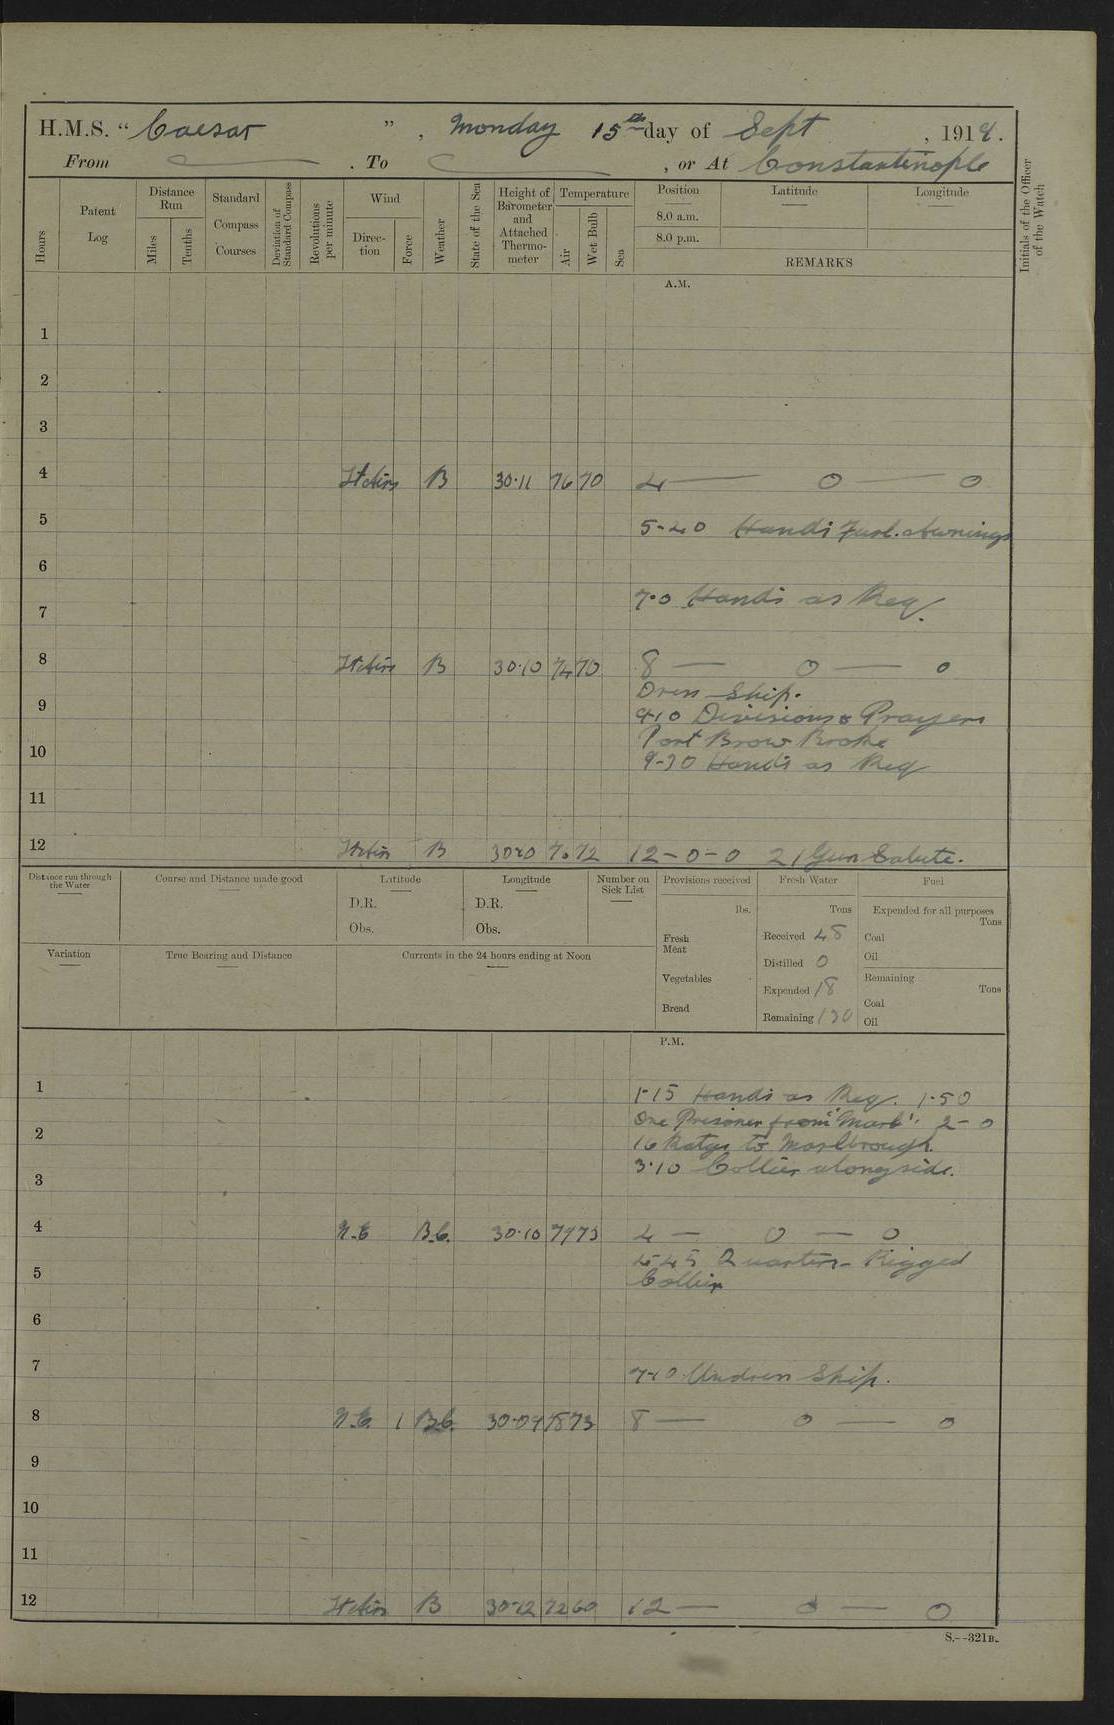 H.M.S. “ Caesar ” , Monday 15th day of Sept , 191
From . To , or At Constantinople
Hours
Patent Log
Distance Run
Miles
Tenths
Standard Compass Courses
Deviation of Standard Compass
Revolutions per minute
Wind
Direc-tion
Force
Weather
State of the Sea
Height of Barometer and Attached Thermo-meter
Temperature
Air
Wet Bulb
Sea
Position
8.0 a.m.
8.0 p.m.
Latitude
Longitude
REMARKS
Initials of the Officer of the Watch
A.M.
1
2
3
4 Lt Airs B 30·11 76 70 4 — 0 — 0
5 5-40 Hands Furl. Awnings
6
7 7·0 Hands as Req.
8 Lt Airs B 30·10 74 70 8 — 0 — 0
Dress Ship.
9 9·10 Divisions & Prayers
Port Brow Broke
10 9-30 Hands as Req
11
12 Lt Airs B 72 12-0-0 21 Gun Salute.
Distance run through the Water
Course and Distance made good
Latitude
D.R.
Obs.
Longitude
D.R.
Obs.
Number on Sick List
Provisions received
lbs.
Fresh Meat
Vegetables
Bread
Fresh Water
Tons
Received 48
Distilled 0
Expended 18
Remaining 130
Fuel
Expended for all purposes
Tons
Coal
Oil
Remaining
Tons
Coal
Oil
Variation
True Bearing and Distance
Currents in the 24 hours ending at Noon
P.M.
1 1-15 Hands as Req. 1-50
One Prisoner from "Marb". 2-0
2 16 Ratgs to Marlbrough.
3 3·10 Collier alongside.
4 N.E B.C. 30·10 73 4 — 0 — 0
4-45 Quarters - Rigged
5 Collier
6
7 Undress Ship.
8 N.E 1 B.C. 30·09 78 73 8 — 0 — 0
9
10
11
12 Lt Airs B 30·12 72 60 12 — 0 — 0
S.--321B.